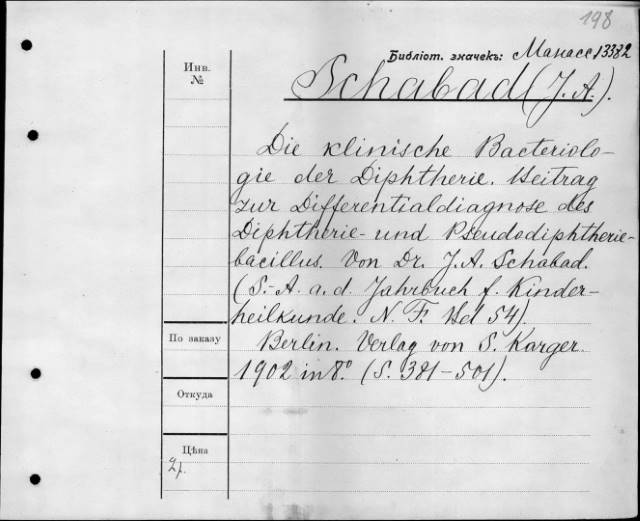 198
Библіот. значекъ: Манасс 13382
Инв.
№
Schabad (J. A.).
Die klinische Bacteriolo-
gie der Diphtherie. Beitrag
zur Differentialdiagnose des
Diphtherie- und Pseudodiphtherie-
bacillus. Von Dr. J. A. Schabad.
(S.-A. a. d. Jahrbuch f. Kinder-
heilkunde. N. F. 54).
По заказу
Berlin. Verlag von S. Karger
1902 in 8°. (S. 381-501).
Откуда
Цѣна